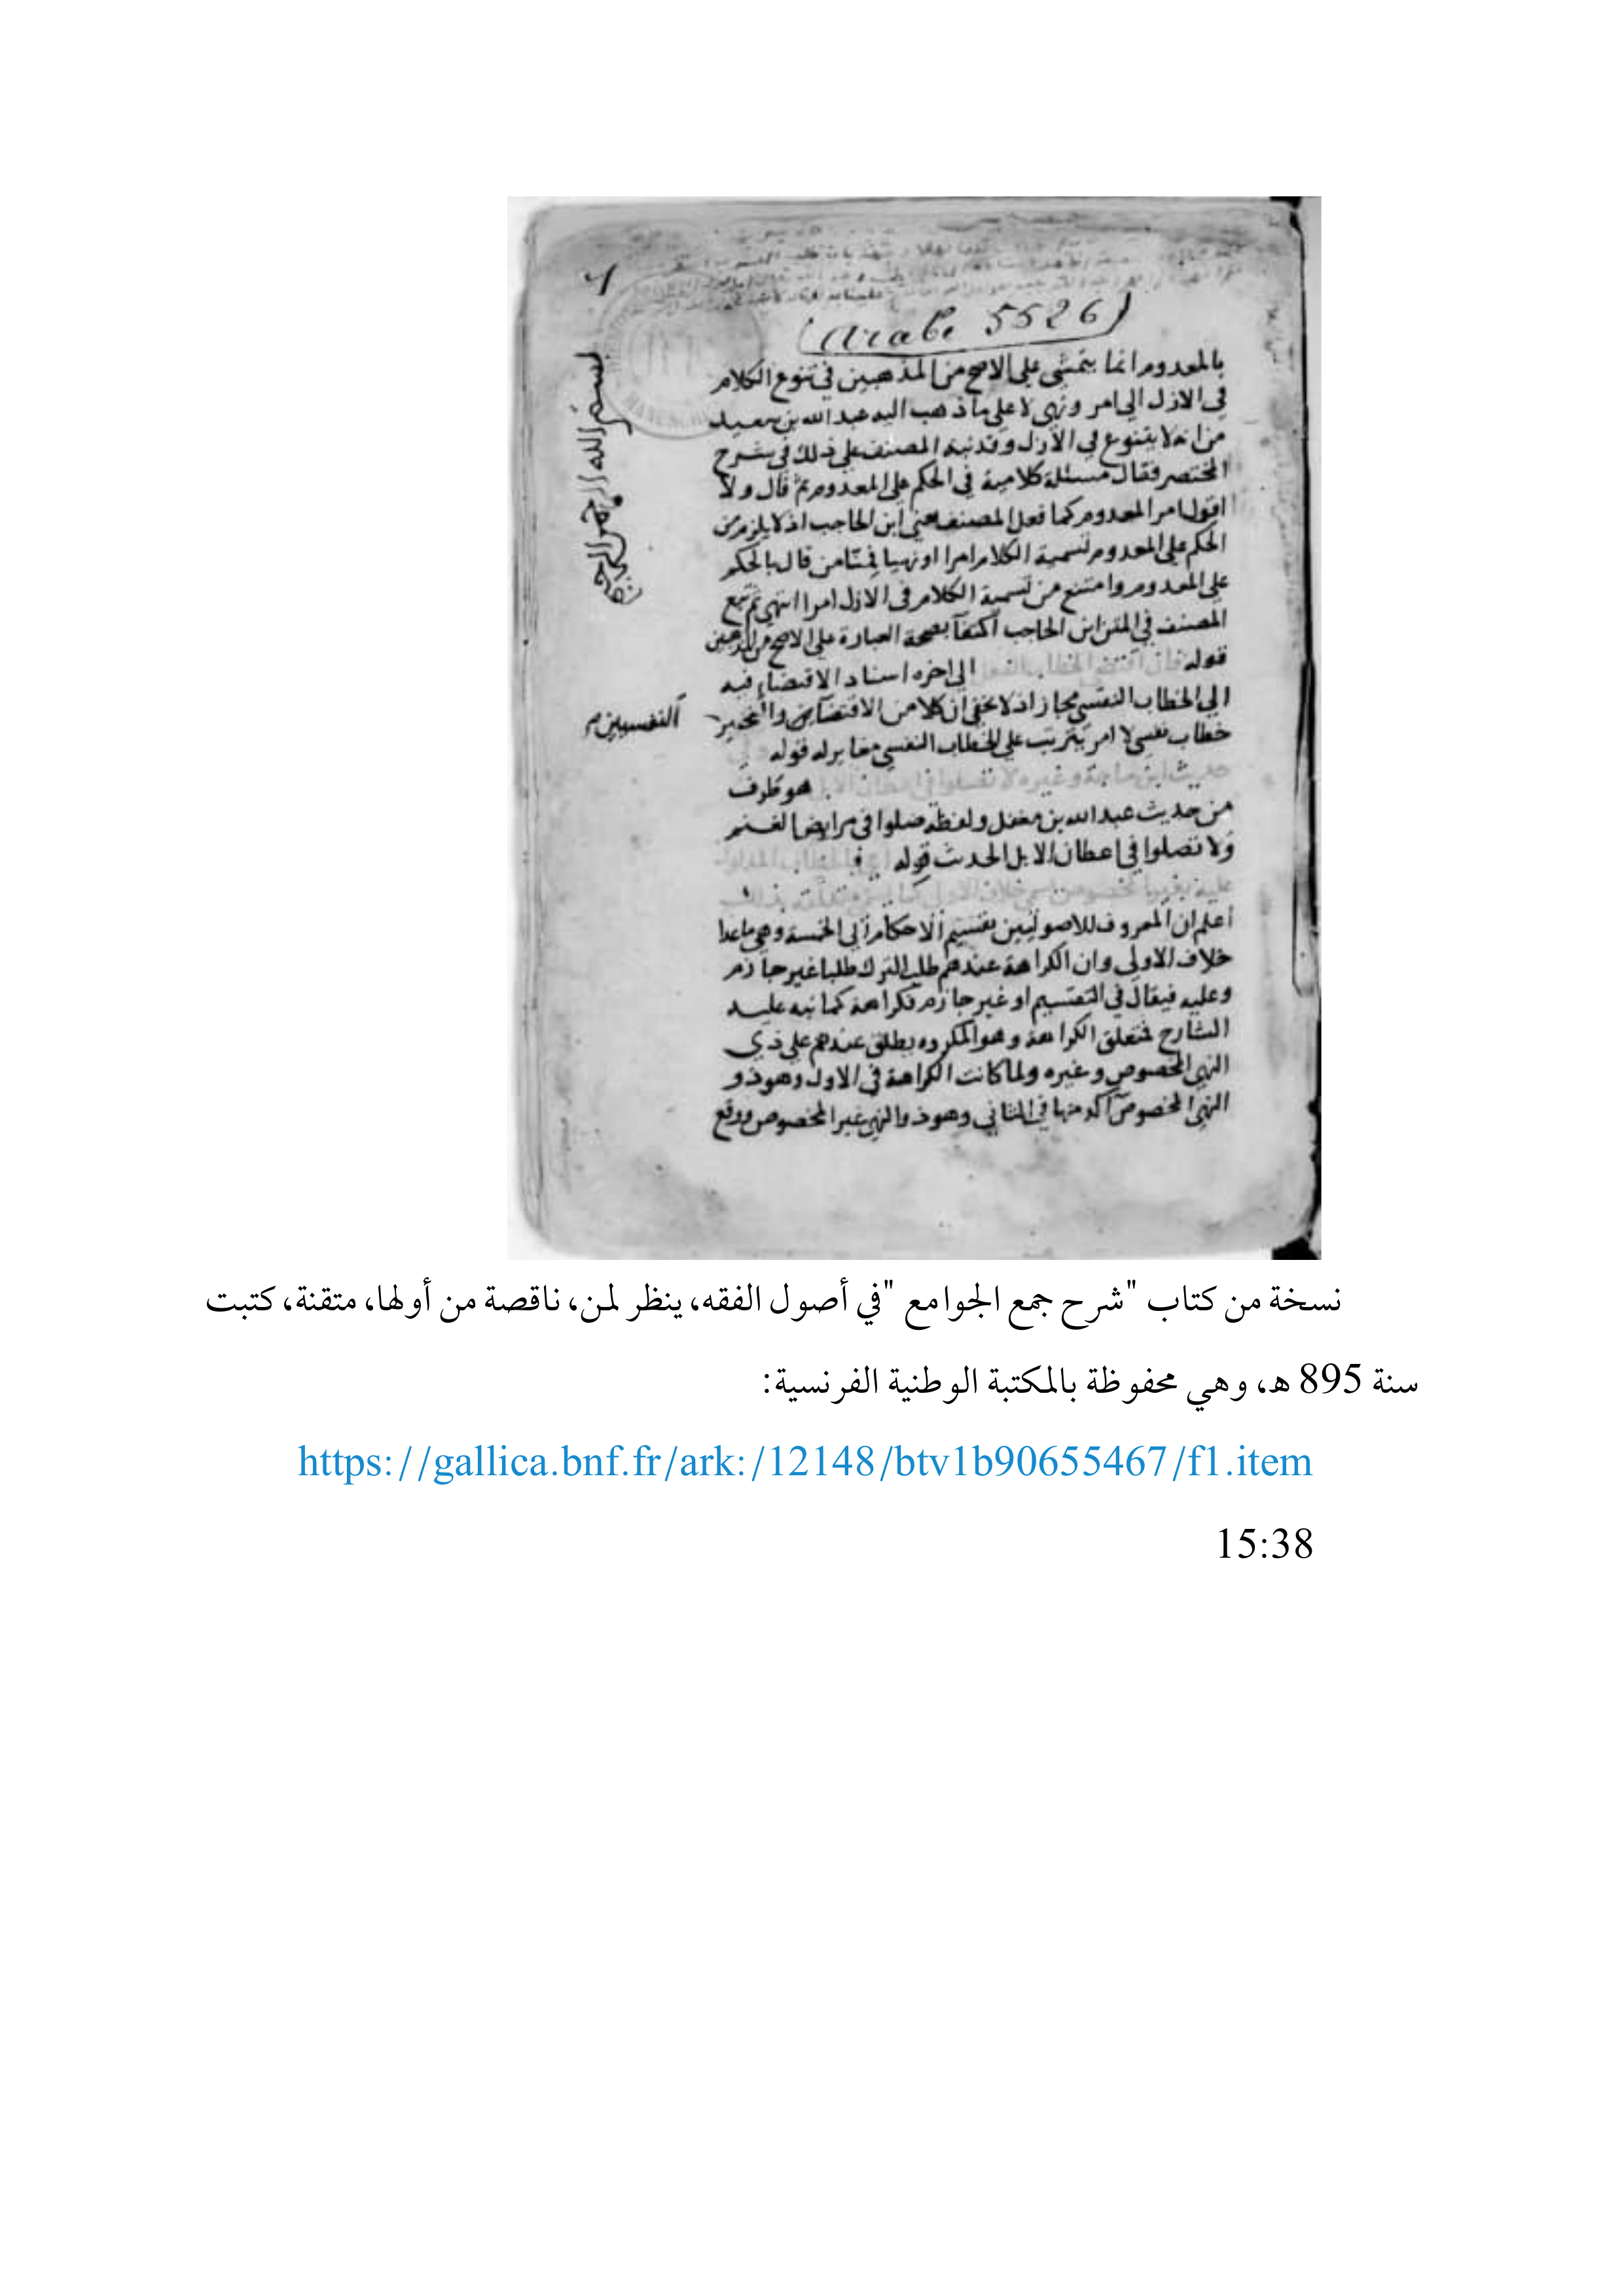 (Arabe 5526)
بالمعدوم انما يتمشى على الاصح من المذهبين في تنوع الكلام
في الازل الى امر ونهى لا على ما ذهب اليه عبد الله بن سعيد
من انه لا يتنوع في الازل وقد نبه المصنف على ذلك في شرح
المختصر فقال مسئلة كلامية في الحكم على المعدوم ثم قال ولا
اقول امر المعدوم كما فعل المصنف يعني ابن الحاجب اذ لا يلزم من
الحكم على المعدوم تسمية الكلام امرا او نهيا فمنا من قال بالحكم
على المعدوم وامتنع من تسمية الكلام في الازل امرا انتهى ثم تبع
المصنف في المتن ابن الحاجب اكتفآ بصحة العبارة على الاصح من المذهبين
قوله فان اقتضى الخطاب الفعل الى اخره اسناد الاقتضاء فيه
الى الخطاب النفسي مجاز اذ لا يخفى ان كلا من الاقتضآ والتخيير
النفسيين
خطاب نفسي لا امر يترتب على الخطاب النفسي مغاير له قوله
حديث ابن ماجة وغيره لا تصلوا في اعطان الابل هو طرف
من حديث عبد الله بن مغفل ولفظه صلوا في مرابض الغنم
ولا تصلوا في اعطان الابل الحدث قوله
اعلم ان المعروف للاصوليين تقسيم الاحكام الى الخمسة وهي ماعدا
خلاف الاولى وان الكراهة عندهم طلب الترك طلبا غير جازم
وعليه فيقال في التقسيم او غير جازم فكراهة كما نبه عليه
الشارح فمتعلق الكراهة وهو المكروه يطلق عندهم على ذي
النهي المخصوص وغيره ولما كانت الكراهة في الاول وهو ذو
النهي المخصوص آكد منها في الثاني وهو ذو النهي غير المخصوص ووقع
بسم الله الرحمن الرحيم
نسخة من كتاب "شرح جمع الجوامع "في أصول الفقه، ينظر لمن، ناقصة من أولها، متقنة، كتبت
سنة 895 هـ، وهي محفوظة بالمكتبة الوطنية الفرنسية:
https://gallica.bnf.fr/ark:/12148/btv1b90655467/f1.item
15:38